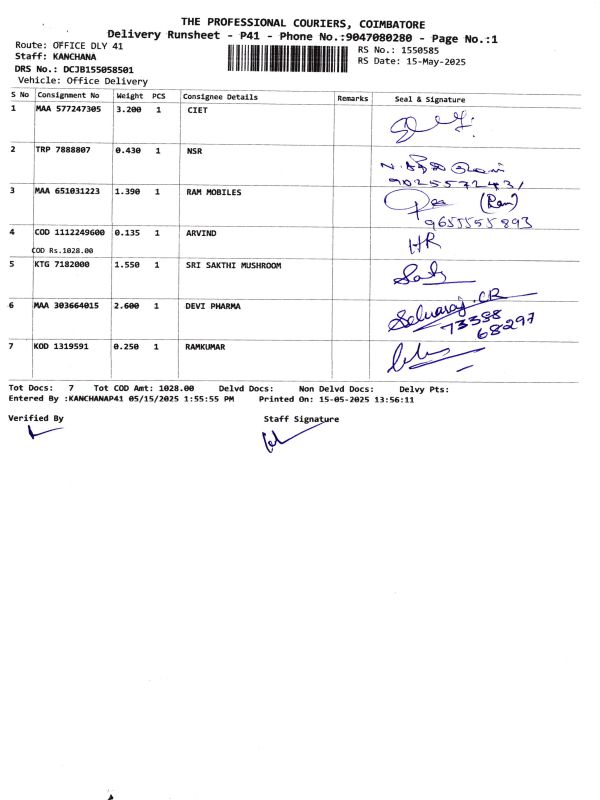 THE PROFESSIONAL COURIERS, COIMBATORE
Delivery Runsheet - P41 - Phone No.:9047080280 - Page No.:1
Route: OFFICE DLY 41
RS No.: 1550585
Staff: KANCHANA
RS Date: 15-May-2025
DRS No.: DCJB155058501
Vehicle: Office Delivery
S No Consignment No Weight PCS Consignee Details Remarks Seal & Signature
1 MAA 577247305 3.200 1 CIET
2 TRP 7888807 0.430 1 NSR
9025572431
3 MAA 651031223 1.390 1 RAM MOBILES (Ram)
9655555893
4 COD 1112249600 0.135 1 ARVIND HR
COD Rs.1028.00
5 KTG 7182000 1.550 1 SRI SAKTHI MUSHROOM
6 MAA 303664015 2.600 1 DEVI PHARMA Selvaraj.CR
73588
68297
7 KOD 1319591 0.250 1 RAMKUMAR
Tot Docs: 7 Tot COD Amt: 1028.00 Delvd Docs: Non Delvd Docs: Delvy Pts:
Entered By :KANCHANAP41 05/15/2025 1:55:55 PM Printed On: 15-05-2025 13:56:11
Verified By Staff Signature